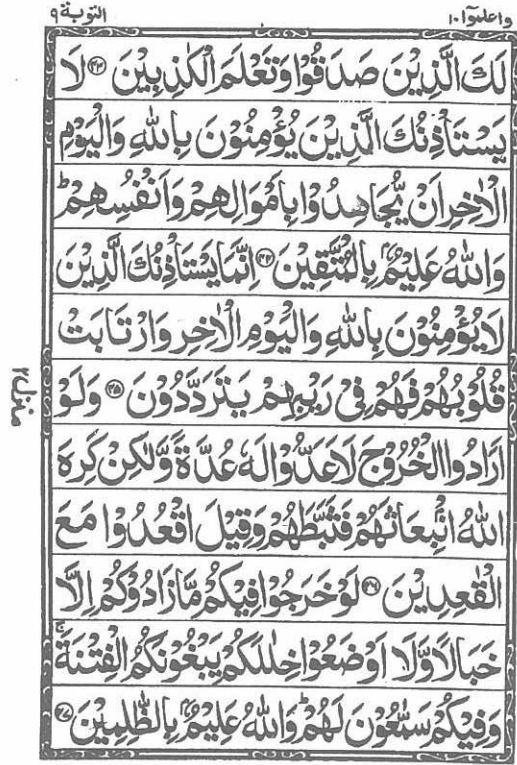 واعلموا ١٠
التوبة ٩
لَكَ الَّذِيْنَ صَدَقُوْا وَتَعْلَمَ الْكٰذِبِيْنَ ﴿۴۳﴾ لَا
يَسْتَاْذِنُكَ الَّذِيْنَ يُؤْمِنُوْنَ بِاللّٰهِ وَالْيَوْمِ
الْاٰخِرِ اَنْ يُّجَاهِدُوْا بِاَمْوَالِهِمْ وَاَنْفُسِهِمْ ؕ
وَاللّٰهُ عَلِيْمٌۢ بِالْمُتَّقِيْنَ ﴿۴۴﴾ اِنَّمَا يَسْتَاْذِنُكَ الَّذِيْنَ
لَا يُؤْمِنُوْنَ بِاللّٰهِ وَالْيَوْمِ الْاٰخِرِ وَارْتَابَتْ
قُلُوْبُهُمْ فَهُمْ فِيْ رَيْبِهِمْ يَتَرَدَّدُوْنَ ﴿۴۵﴾ وَلَوْ
اَرَادُوا الْخُرُوْجَ لَاَعَدُّوْا لَهٗ عُدَّةً وَّلٰكِنْ كَرِهَ
اللّٰهُ انْۢبِعَاثَهُمْ فَثَبَّطَهُمْ وَقِيْلَ اقْعُدُوْا مَعَ
الْقٰعِدِيْنَ ﴿۴۶﴾ لَوْ خَرَجُوْا فِيْكُمْ مَّا زَادُوْكُمْ اِلَّا
خَبَالًا وَّلَا۟اَوْضَعُوْا خِلٰلَكُمْ يَبْغُوْنَكُمُ الْفِتْنَةَ ۚ
وَفِيْكُمْ سَمّٰعُوْنَ لَهُمْ ؕ وَاللّٰهُ عَلِيْمٌۢ بِالظّٰلِمِيْنَ ﴿۴۷﴾
منزل ٢